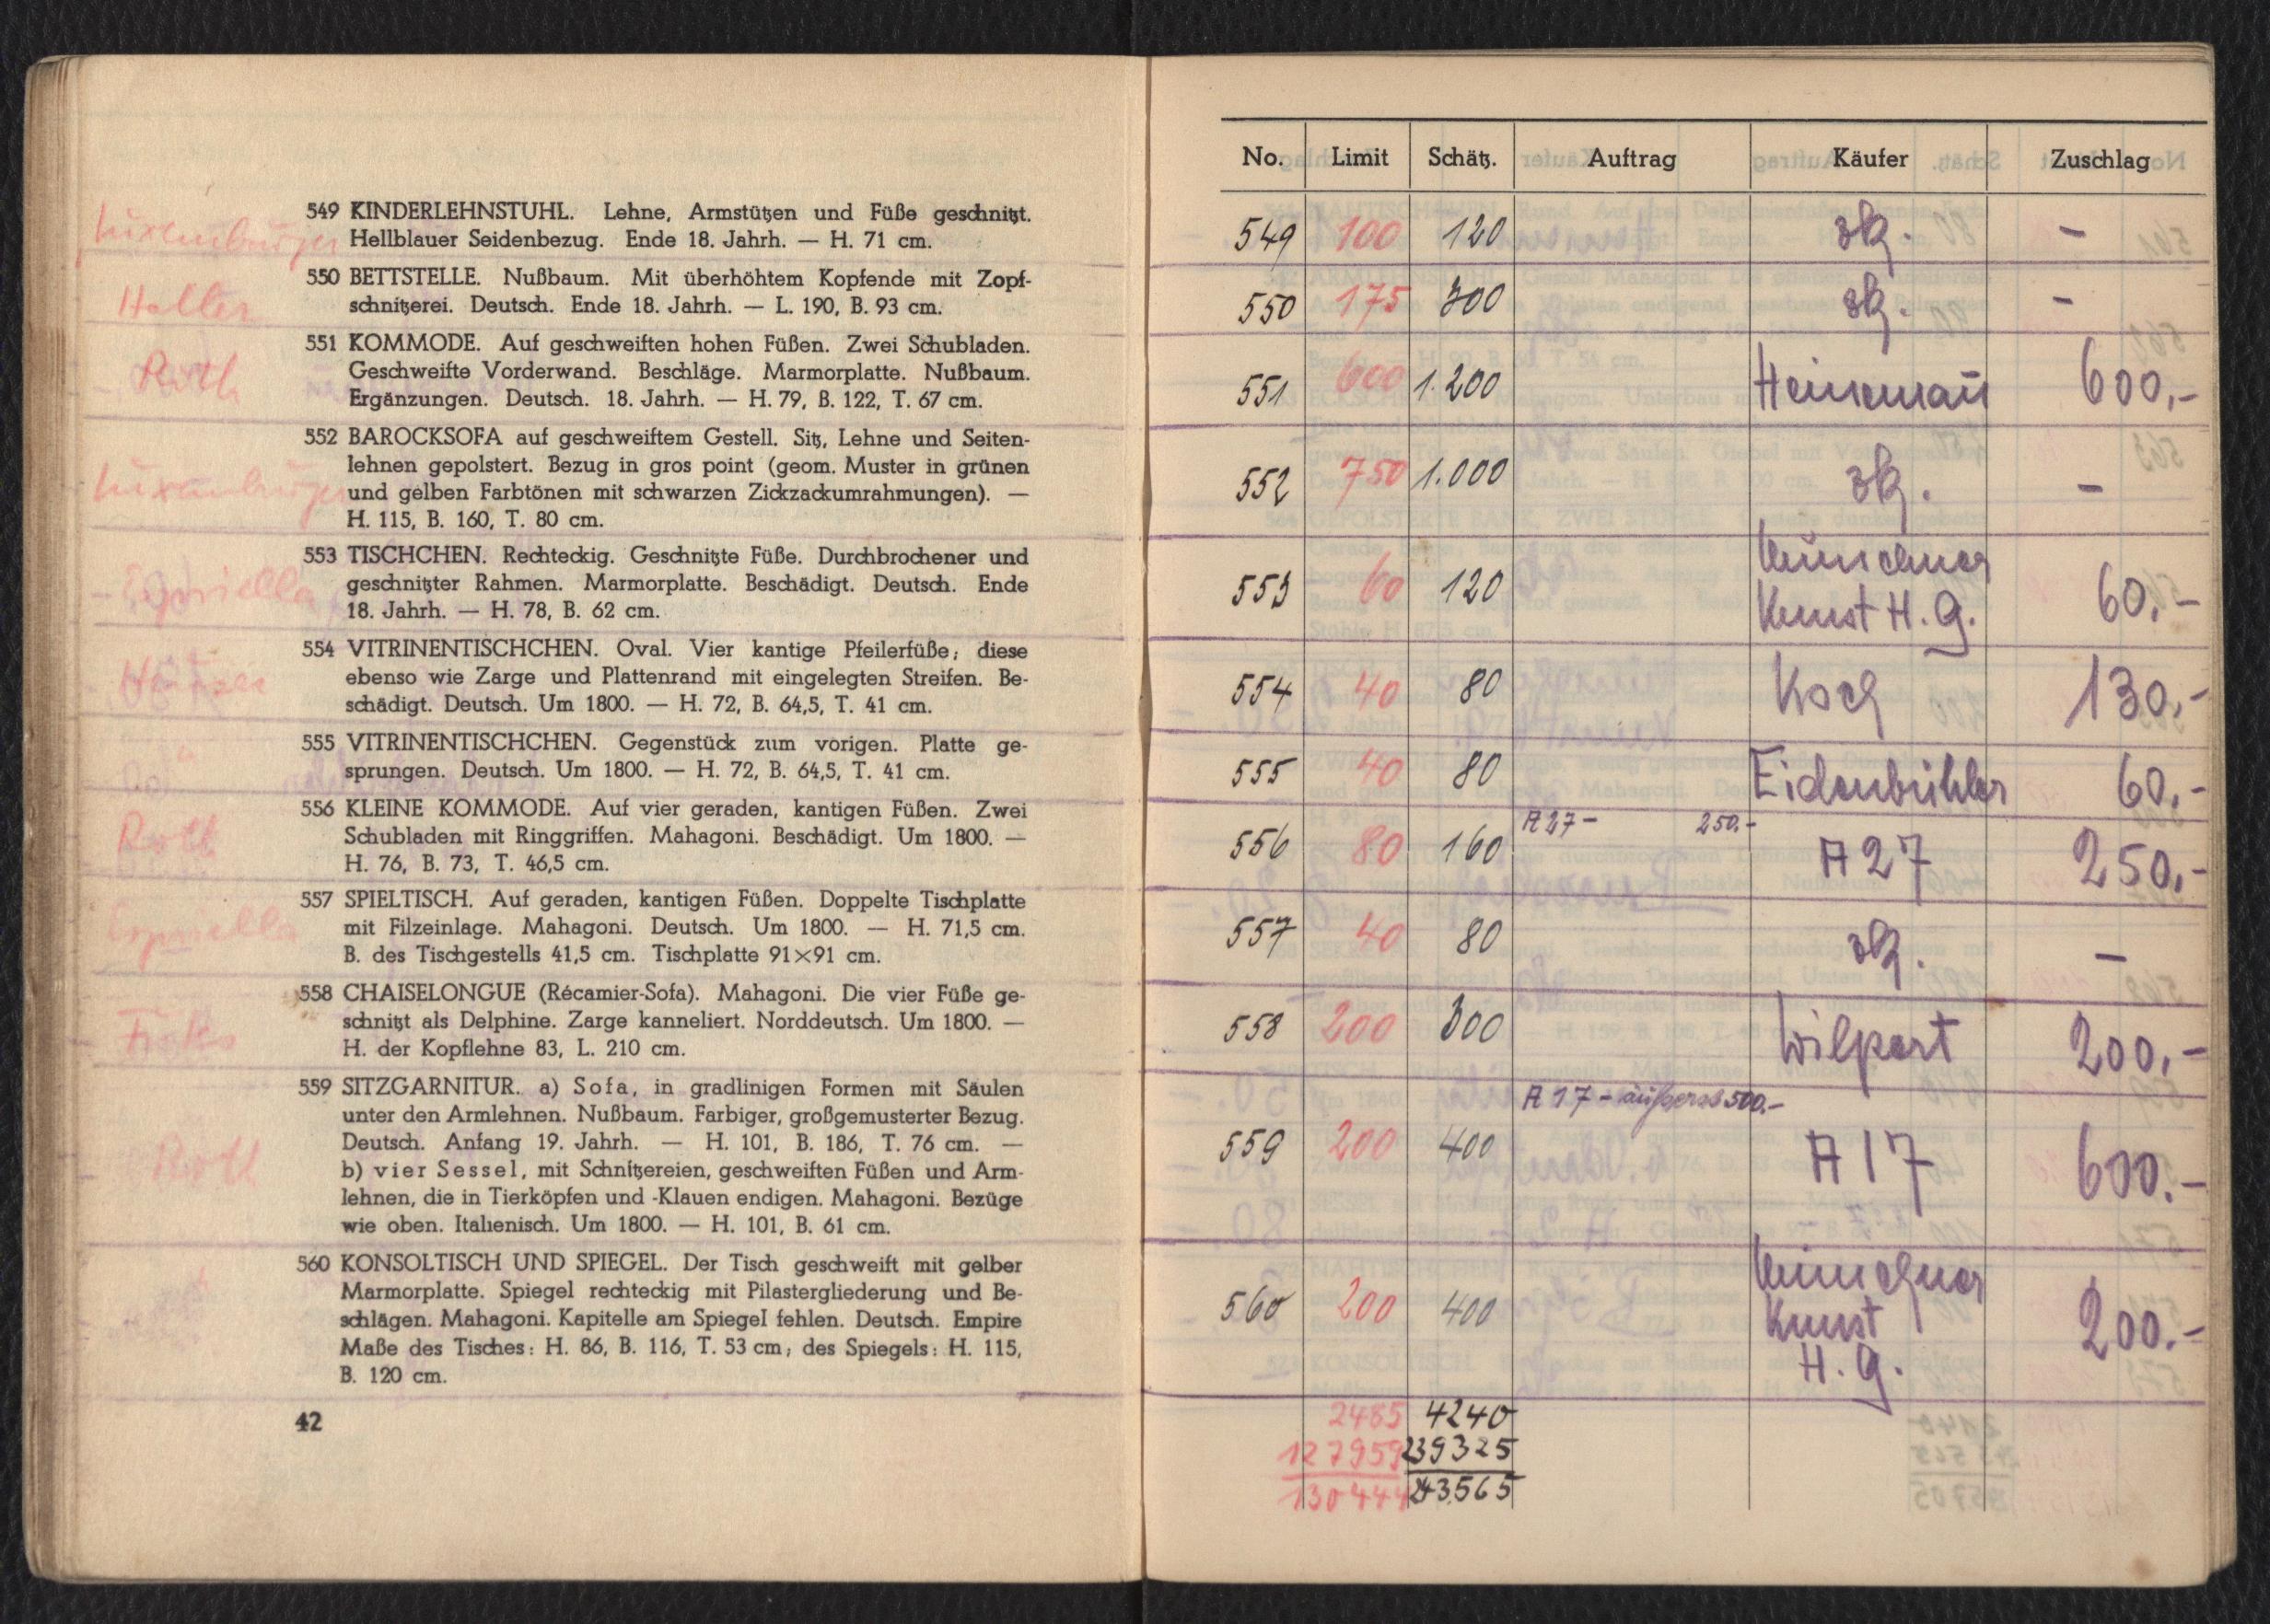 549 KINDERLEHNSTUHL. Lehne, Armstützen und Füße geschnitzt.
Hellblauer Seidenbezug. Ende 18. Jahrh. — H. 71 cm.
Luxemburger
550 BETTSTELLE. Nußbaum. Mit überhöhtem Kopfende mit Zopf-
schnitzerei. Deutsch. Ende 18. Jahrh. — L. 190, B. 93 cm.
551 KOMMODE. Auf geschweiften hohen Füßen. Zwei Schubladen.
Geschweifte Vorderwand. Beschläge. Marmorplatte. Nußbaum.
Ergänzungen. Deutsch. 18. Jahrh. — H. 79, B. 122, T. 67 cm.
Roth
552 BAROCKSOFA auf geschweiftem Gestell. Sitz, Lehne und Seiten-
lehnen gepolstert. Bezug in gros point (geom. Muster in grünen
und gelben Farbtönen mit schwarzen Zickzackumrahmungen). —
H. 115, B. 160, T. 80 cm.
Luxemburger
553 TISCHCHEN. Rechteckig. Geschnitzte Füße. Durchbrochener und
geschnitzter Rahmen. Marmorplatte. Beschädigt. Deutsch. Ende
18. Jahrh. — H. 78, B. 62 cm.
554 VITRINENTISCHCHEN. Oval. Vier kantige Pfeilerfüße; diese
ebenso wie Zarge und Plattenrand mit eingelegten Streifen. Be-
schädigt. Deutsch. Um 1800. — H. 72, B. 64,5, T. 41 cm.
555 VITRINENTISCHCHEN. Gegenstück zum vorigen. Platte ge-
sprungen. Deutsch. Um 1800. — H. 72, B. 64,5, T. 41 cm.
556 KLEINE KOMMODE. Auf vier geraden, kantigen Füßen. Zwei
Schubladen mit Ringgriffen. Mahagoni. Beschädigt. Um 1800. —
H. 76, B. 73, T. 46,5 cm.
Roth
557 SPIELTISCH. Auf geraden, kantigen Füßen. Doppelte Tischplatte
mit Filzeinlage. Mahagoni. Deutsch. Um 1800. — H. 71,5 cm.
B. des Tischgestells 41,5 cm. Tischplatte 91×91 cm.
558 CHAISELONGUE (Récamier-Sofa). Mahagoni. Die vier Füße ge-
schnitzt als Delphine. Zarge kanneliert. Norddeutsch. Um 1800. —
H. der Kopflehne 83, L. 210 cm.
559 SITZGARNITUR. a) Sofa, in gradlinigen Formen mit Säulen
unter den Armlehnen. Nußbaum. Farbiger, großgemusterter Bezug.
Deutsch. Anfang 19. Jahrh. — H. 101, B. 186, T. 76 cm. —
b) vier Sessel, mit Schnitzereien, geschweiften Füßen und Arm-
lehnen, die in Tierköpfen und -Klauen endigen. Mahagoni. Bezüge
wie oben. Italienisch. Um 1800. — H. 101, B. 61 cm.
Roth
560 KONSOLTISCH UND SPIEGEL. Der Tisch geschweift mit gelber
Marmorplatte. Spiegel rechteckig mit Pilastergliederung und Be-
schlägen. Mahagoni. Kapitelle am Spiegel fehlen. Deutsch. Empire
Maße des Tisches: H. 86, B. 116, T. 53 cm; des Spiegels: H. 115,
B. 120 cm.
42
No. Limit Schätz. Auftrag Käufer Zuschlag
549 100 120 –
550 175 300 –
551 600 1.200 Heinemann 600.-
552 750 1.000 –
553 60 120 Münchner Kunst H. G. 60.-
554 40 80 Koch 130.-
555 40 80 Eidenbühler 60.-
556 80 160 A 27 – 250.- A 27 250.-
557 40 80 –
558 200 300 Wilpert 200.-
559 200 400 A 17 – äußerst 500.- A 17 600.-
560 200 400 Münchner Kunst H. G. 200.-
2485 4240
127959 239325
130444 243565